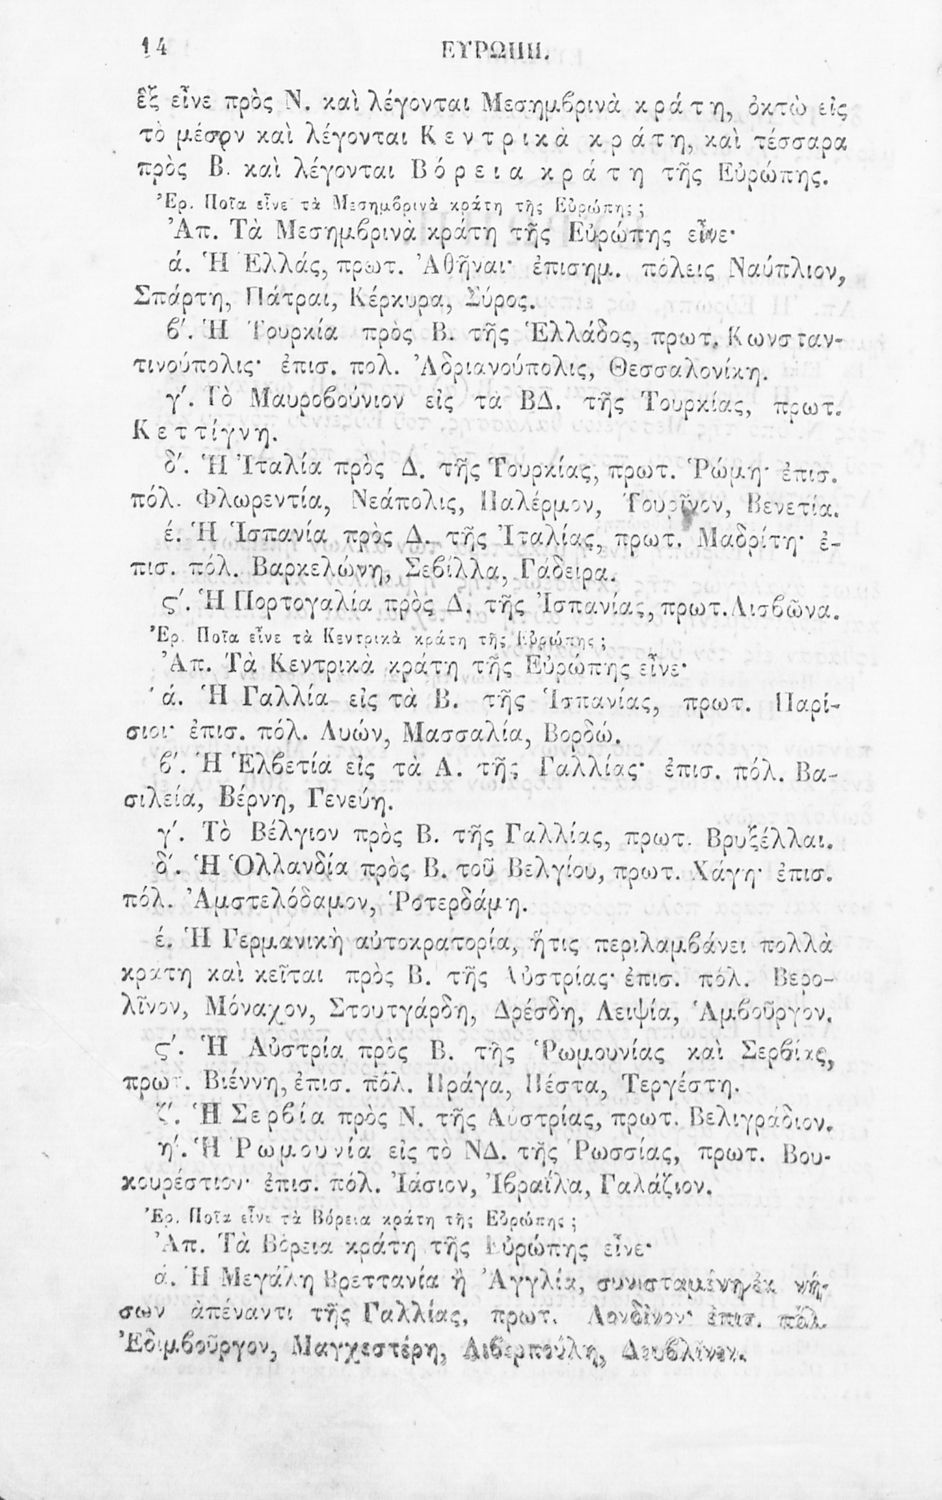 14 ΕΥΡΩΠΗ.
ἓξ εἶνε πρὸς Ν. καὶ λέγονται Μεσημβρινὰ κράτη, ὀκτὼ εἰς
τὸ μέσον καὶ λέγονται Κεντρικὰ κράτη, καὶ τέσσαρα
πρὸς Β. καὶ λέγονται Βόρεια κράτη τῆς Εὐρώπης.
Ἐρ. Ποῖα εἶνε τὰ Μεσημβρινὰ κράτη τῆς Εὐρώπης;
Ἀπ. Τὰ Μεσημβρινὰ κράτη τῆς Εὐρώπης εἶνε·
ά. Ἡ Ἑλλάς, πρωτ. Ἀθῆναι· ἐπισημ. πόλεις Ναύπλιον,
Σπάρτη, Πάτραι, Κέρκυρα, Σύρος.
β'. Ἡ Τουρκία πρὸς Β. τῆς Ἑλλάδος, πρωτ. Κωνσταν-
τινούπολις· ἐπισ. πολ. Ἀδριανούπολις, Θεσσαλονίκη.
γ'. Τὸ Μαυροβούνιον εἰς τὰ ΒΔ. τῆς Τουρκίας, πρωτ.
Κεττίγνη.
δ'. Ἡ Ἰταλία πρὸς Δ. τῆς Τουρκίας, πρωτ. Ῥώμη· ἐπισ.
πόλ. Φλωρεντία, Νεάπολις, Παλέρμον, Τουρῖνον, Βενετία.
έ. Ἡ Ἱσπανία πρὸς Δ. τῆς Ἰταλίας, πρωτ. Μαδρίτη· ἐ-
πισ. πόλ. Βαρκελώνη, Σεβίλλα, Γάδειρα.
ς'. Ἡ Πορτογαλία πρὸς Δ. τῆς Ἱσπανίας, πρωτ. Λισβῶνα.
Ἐρ. Ποῖα εἶνε τὰ Κεντρικὰ κράτη τῆς Εὐρώπης;
Ἀπ. Τὰ Κεντρικὰ κράτη τῆς Εὐρώπης εἶνε·
ά. Ἡ Γαλλία εἰς τὰ Β. τῆς Ἱσπανίας, πρωτ. Παρί-
σιοι· ἐπισ. πόλ. Λυών, Μασσαλία, Βορδώ.
β'. Ἡ Ἑλβετία εἰς τὰ Α. τῆς Γαλλίας· ἐπισ. πόλ. Βα-
σιλεία, Βέρνη, Γενεύη.
γ'. Τὸ Βέλγιον πρὸς Β. τῆς Γαλλίας, πρωτ. Βρυξέλλαι.
δ'. Ἡ Ὁλλανδία πρὸς Β. τοῦ Βελγίου, πρωτ. Χάγη· ἐπισ.
πόλ. Ἀμστελόδαμον, Ῥοτερδάμη.
έ. Ἡ Γερμανικὴ αὐτοκρατορία, ἥτις περιλαμβάνει πολλὰ
κράτη καὶ κεῖται πρὸς Β. τῆς Αὐστρίας· ἐπισ. πόλ. Βερο-
λῖνον, Μόναχον, Στουτγάρδη, Δρέσδη, Λειψία, Ἁμβοῦργον.
ς'. Ἡ Αὐστρία πρὸς Β. τῆς Ῥωμουνίας καὶ Σερβίας,
πρωτ. Βιέννη, ἐπισ. πόλ. Πράγα, Πέστα, Τεργέστη.
ζ'. Ἡ Σερβία πρὸς Ν. τῆς Αὐστρίας, πρωτ. Βελιγράδιον.
η'. Ἡ Ῥωμουνία εἰς τὸ ΝΔ. τῆς Ῥωσσίας, πρωτ. Βου-
κουρέστιον· ἐπισ. πόλ. Ἰάσιον, Ἰβραΐλα, Γαλάζιον.
Ἐρ. Ποῖα εἶνε τὰ Βόρεια κράτη τῆς Εὐρώπης;
Ἀπ. Τὰ Βόρεια κράτη τῆς Εὐρώπης εἶνε·
ά. Ἡ Μεγάλη Βρεττανία ἢ Ἀγγλία, συνισταμένη ἐκ νή-
σων ἀπέναντι τῆς Γαλλίας, πρωτ. Λονδῖνον· ἐπισ. πόλ.
Ἐδιμβοῦργον, Μαγχεστέρη, Λιβερπούλη, Δουβλῖνον.